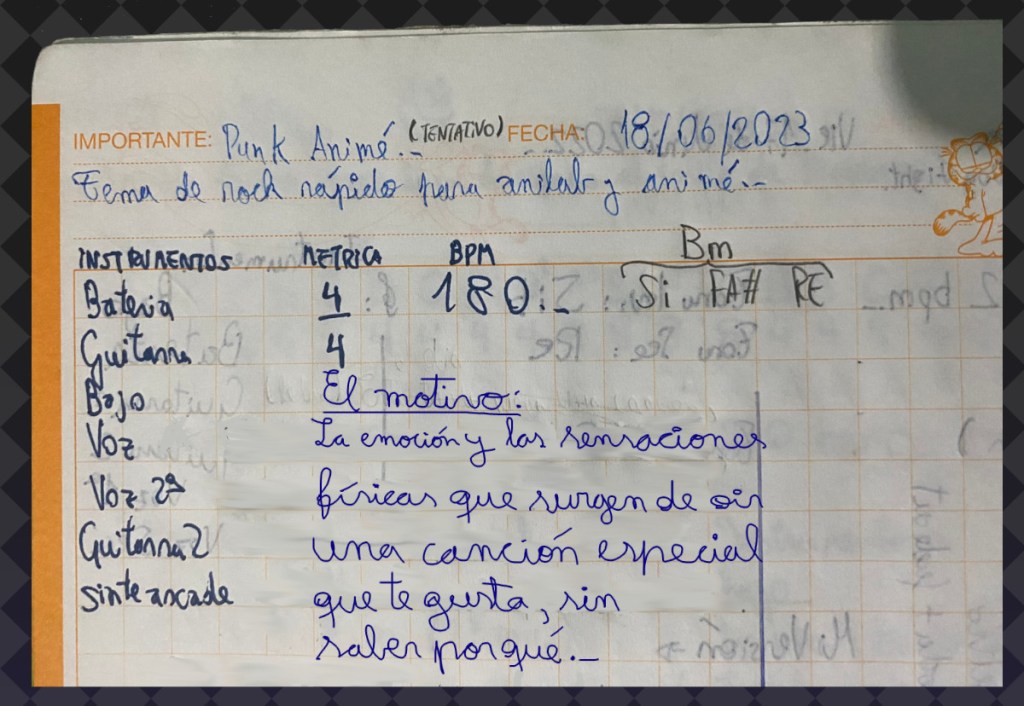 IMPORTANTE: Punk Animé.- (TENTATIVO) FECHA: 18/06/2023
tema de rock rápido para anilab y animé.-
INSTRUMENTOS METRICA BPM Bm
Batería 4 180.- Si FA# RE
Guitarra 4
Bajo El motivo:
Voz La emoción y las sensaciones
Voz 2ª físicas que surgen de oir
Guitarra 2 una canción especial
sinte arcade que te gusta, sin
saber porqué.-